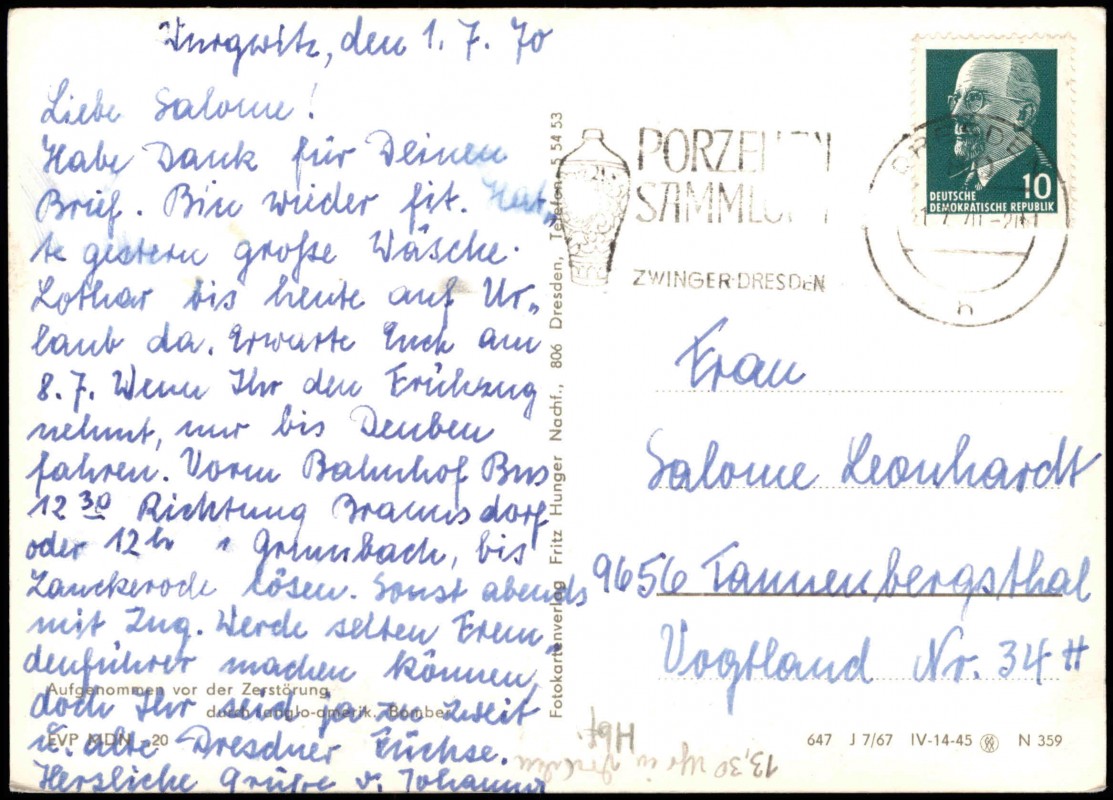 Wurgwitz, den 1. 7. 70
Liebe Salome!
Habe Dank für Deinen
Brief. Bin wieder fit. Hat„
te gestern große Wäsche.
Lothar bis heute auf Ur„
laub da. Erwarte Euch am
8.7. Wenn Ihr den Frühzug
nehmt, nur bis Deuben
fahren. Vorm Bahnhof Bus
12 30 Richtung Braunsdorf
oder 12 h " Grumbach, bis
Zauckerode lösen. Sonst abends
mit Zug. Werde selten Frem„
denführer machen können,
doch Ihr seid ja zu zweit
u. alte Dresdner Füchse.
Herzliche Grüße v. Johanna
Aufgenommen vor der Zerstörung
durch anglo-amerik. Bomber
EVP MDN -20
Fotokartenverlag Fritz Hunger Nachf., 806 Dresden, Telefon 5 54 53
PORZELLAN
SAMMLUNG
ZWINGER·DRESDEN
DRESDEN
1.7.70-20
h
10
DEUTSCHE
DEMOKRATISCHE REPUBLIK
Frau
Salome Leonhardt
9656 Tannenbergsthal
Vogtland Nr. 34 H
13,30 Uhr in Dresden
Hbf.
647 J 7/67 IV-14-45 N 359